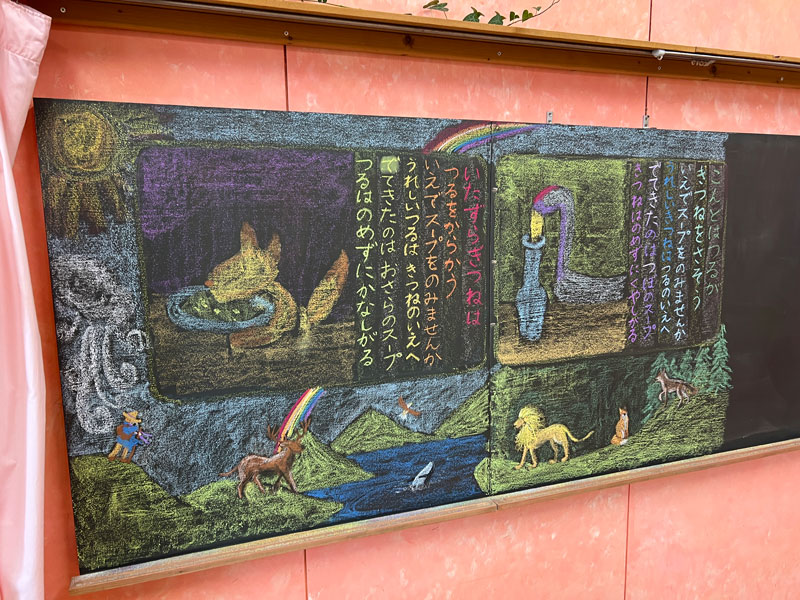 いたずらきつねは
つるをからかう
いえでスープをのみませんか
うれしいつるはきつねのいえへ
でてきたのは おさらのスープ
つるはのめずにかなしがる
こんどはつるが
きつねをさそう
いえでスープをのみませんか
うれしいきつねはつるのいえへ
でてきたのはつぼのスープ
きつねはのめずにくやしがる